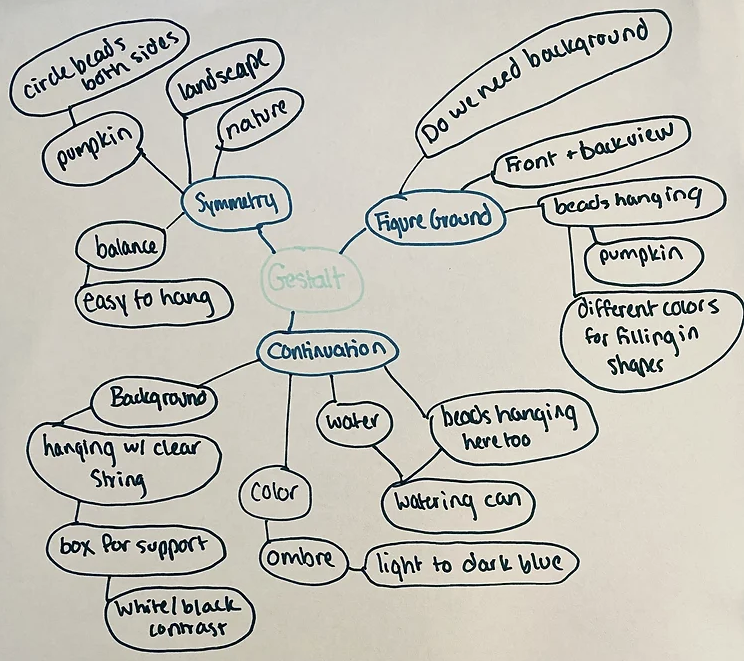 circle beads
both sides
landscape
nature
pumpkin
Symmetry
balance
easy to hang
Do we need background
Front + backview
Figure Ground
beads hanging
pumpkin
different colors
for filling in
shapes
Gestalt
Continuation
Background
hanging w/ clear
String
box for support
White/black
contrast
water
beads hanging
here too
watering can
color
ombre
light to dark blue